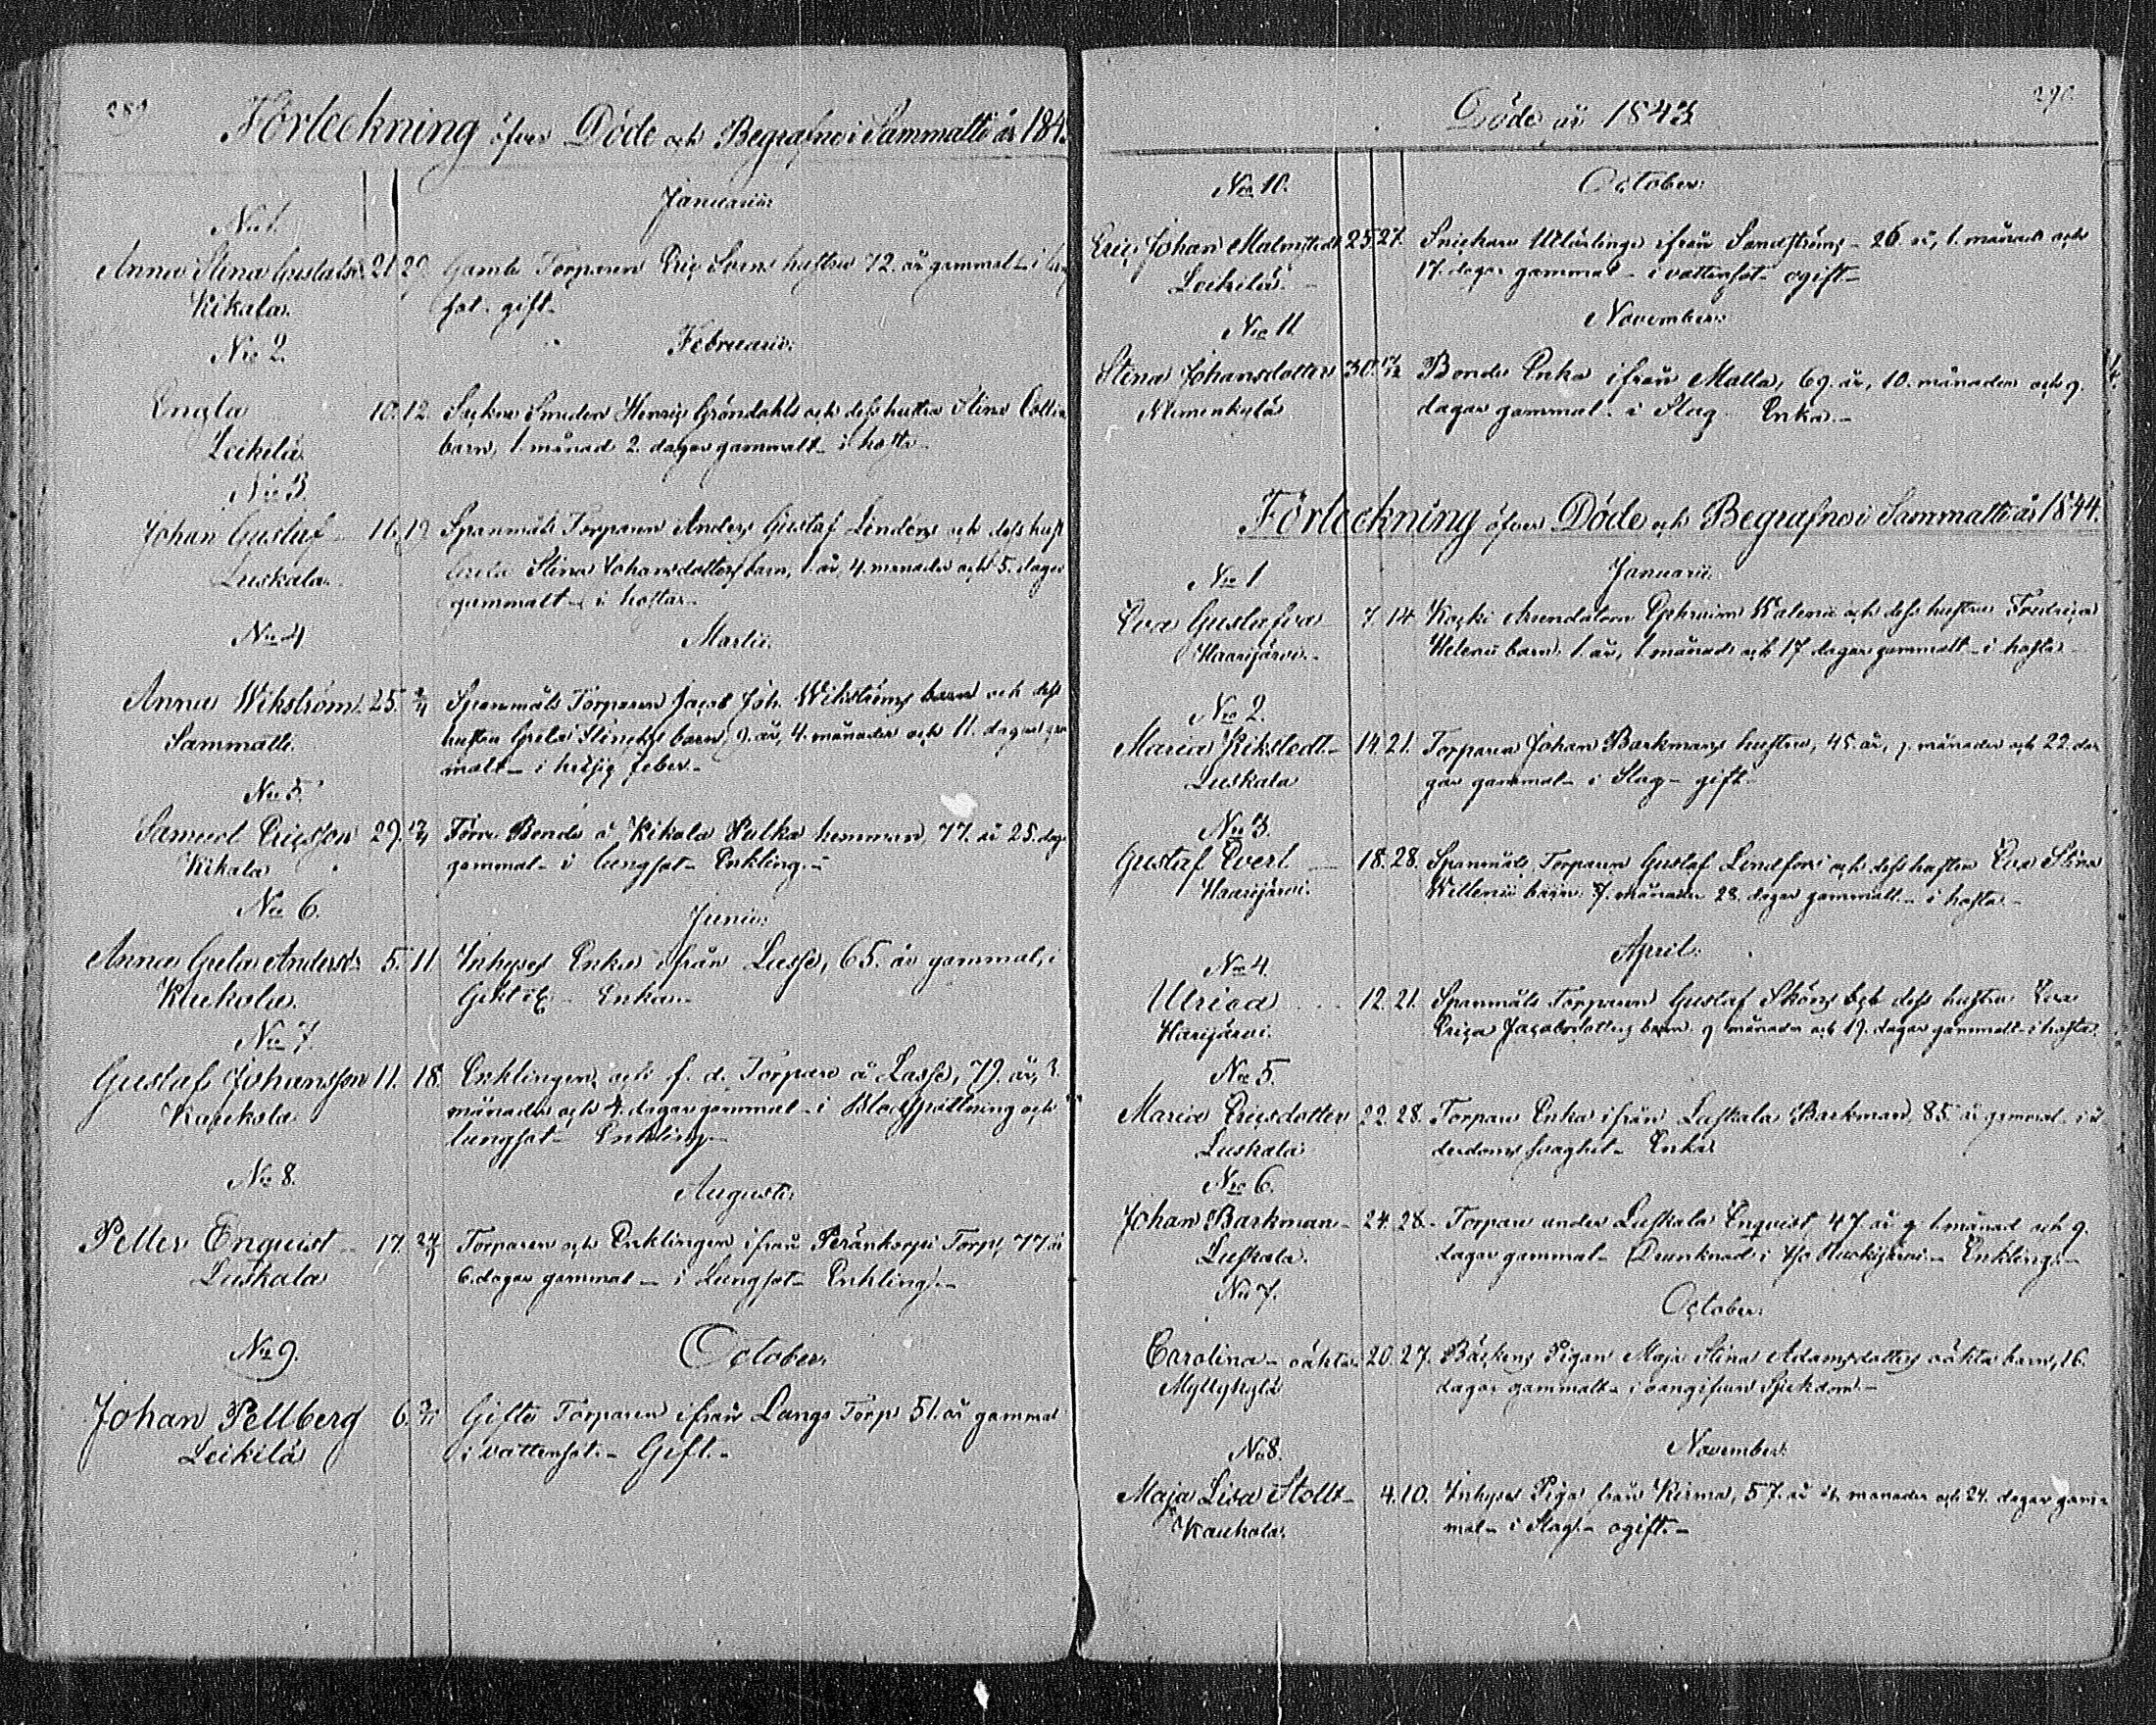 289
Förteckning öfver Döde och Begrafne i Sammatti år 184
Januarii.
No 1.
Anna Stina Gustafsd. 21. 29. Gamla Torparen Eric Svens hustru 72. år gammal - i lung
Kikala. sot. gift.
No 2. Februarii.
Engla 10. 12. Henric Gröndahls och dess hustru Stina
Leikilä. barn, 1. månad 2. dagar gammalt - i hosta -
No 3.
Johan Gustaf - 16. 19. Spanmåls Torparen Anders Gustaf Lindéns och dess hust
Luskala. Greta Stina Johansdotters barn, 1. år, 4. månader och 5. dagar
gammalt - i hosta -
No 4 Martii.
Anna Wikström. 25. 2/4 Spanmåls Torparen Jacob Joh. Wikströms barn och dess
Sammatti. hustru Greta barn, 9. år, 4. månader och 11. dagar gam
malt - i hetsig feber -
No 5.
Samuel Ericsson 29. Förre Bonde å Kikala Pulka hemman, 77. år 25. dag
Kikala gammal - i lungsot - Enkling. -
No 6. Junii.
Anna Greta Andersd. 5. 11. Inhyses Enka ifrån Lasse, 65. år gammal, i
Kaukola. Enka. -
No 7.
Gustaf Johansson 11. 18. Enklingen och f. d. Torpare å Lasse, 79. år, 3.
Kaukola månader och 4. dagar gammal - i och
lungsot - Enkling -
No 8. Augusti.
Petter Enquist - 17. 24 Torparen och Enklingen ifrån Peränkorpi Torp, 77 år
Luskala 6. dagar gammal - i Lungsot - Enkling. -
No 9. October.
Johan Pellberg 6. Gifte Torparen ifrån Långs Torp 51. år gammal
Leikilä i vattensot. - Gift. -
290.
Döde år 1843
No 10. October.
Eric Johan Malmstedt 25. 27. Snickare Utlärlinge ifrån Sandströms - 26. år, 1. månad och
Leikilä. - 17. dagar gammal - i vattensot - ogift -
No 11 November.
Stina Johansdotter 30. Bonde Enka ifrån Malla, 69. år, 10. månader och 9.
Niemenkylä dagar gammal - i Slag - Enka. -
Förteckning öfver Döde och Begrafne i Sammatti år 1844.
No 1 Januarii
Eva Gustafva 7. 14. Koski Arendatorn Ephraim Walenii och dess hustru Fredrica
Haarijärvi. - barn. 1. år, 1 månad och 17 dagar gammalt - i hosta -
No 2.
Maria Kikstedt - 14. 21. Torparen Johan Barkmans hustru, 45. år, 9. månader och 22. da
Luskala gar gammal - i Slag - gift -
No 3.
Gustaf Evert 18. 28. Spanmåls Torparen Gustaf Lindfors och dess hustru Eva Stina
Haarijärvi. Willenii barn. 7. månader 28. dagar gammalt - i hosta -
No 4. April.
Ulrica 12. 21. Spanmåls Torparen Gustaf Sköns och dess hustru Eva
Harijärvi. Erica Jacobsdotters barn 9 månader och 19. dagar gammalt - i hosta.
No 5.
Maria Ericsdotter 22. 28. Torpare Enka ifrån Luskala Barkman, 85. år gammal - i ål
Luskala derdoms svaghet - Enka
No 6.
Johan Barkman - 24. 28. - Torpare under Luskala Enquist 47. år 1. månad och 9.
Luskala. dagar gammal - Drunknad i - Enkling. -
No 7. October.
Carolina - oäkta 20. 27. Bäckens Pigan Maja Stina Adamsdotters oäkta barn, 16.
Myllykylä dagar gammalt - i oangifven Sjukdom. -
No 8. November.
Maja Lisa Stolts - 4. 10. Inhyses Piga från Kirma, 57. år månader och 24. dagar gam
Kaukola. mal - i Slag. - ogift. -